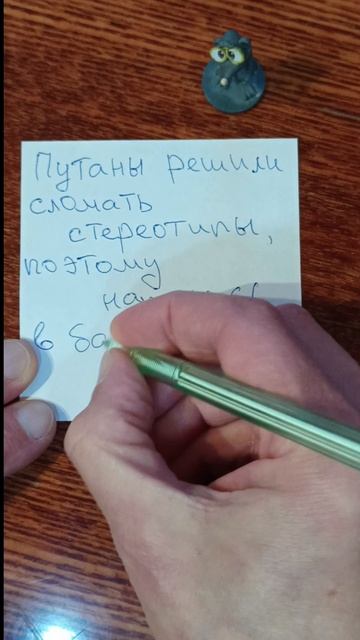 Путаны решили
сломать
стереотипы,
поэтому
в ба